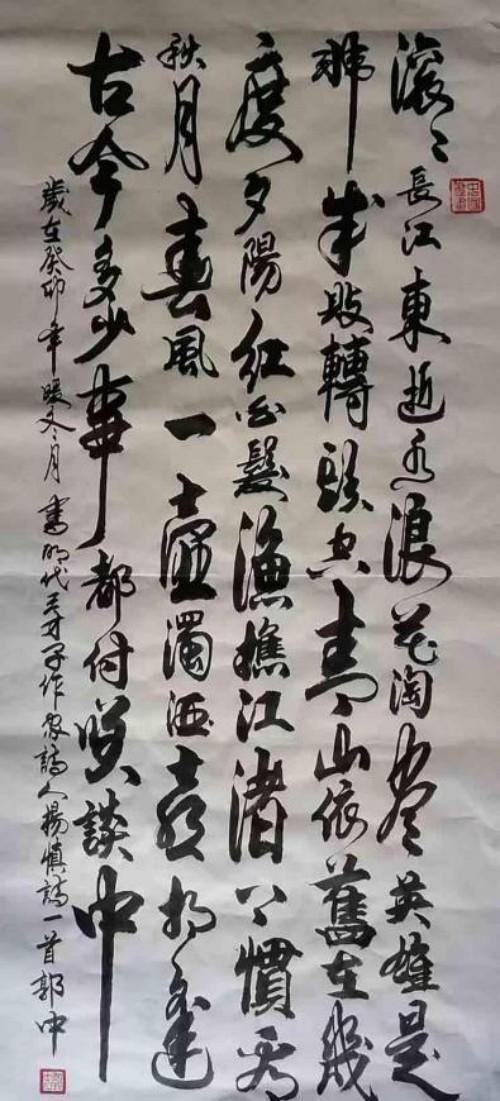 滚〻長江東逝水浪花淘尽英雄是
非成敗轉頭空青山依舊在幾
度夕陽紅白髮漁樵江渚上慣看
秋月春風一壺濁酒喜相逢
古今多少事都付笑談中
歲在癸卯年暖冬月書明代三才子作家詩人楊慎詩一首郭中